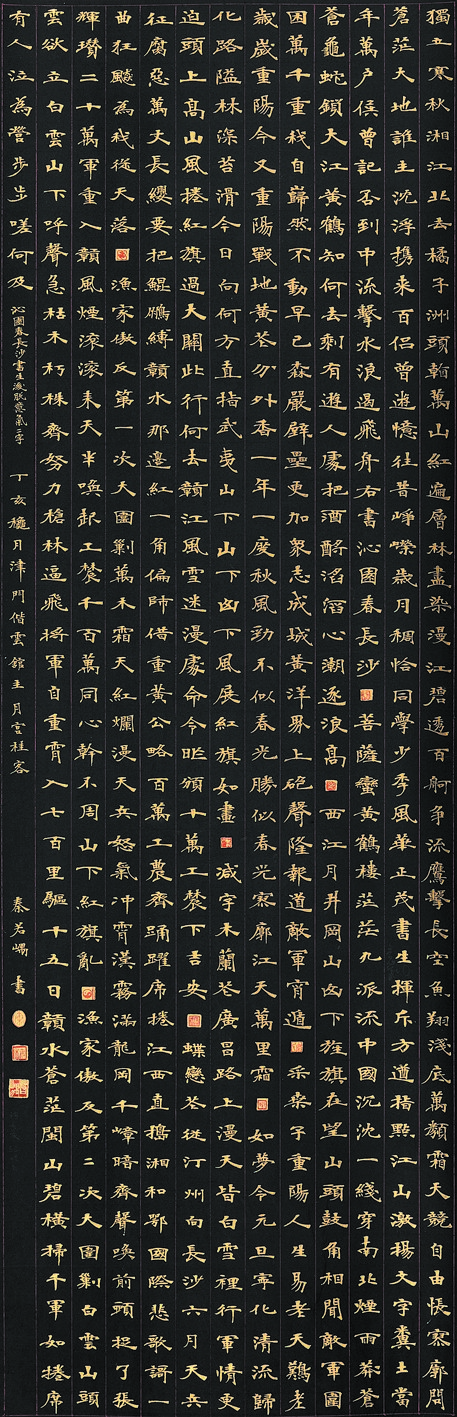 獨立寒秋湘江北去橘子洲頭看萬山紅遍層林盡染漫江碧透百舸爭流鷹擊長空魚翔淺底萬類霜天競自由悵寥廓問
蒼茫大地誰主沈浮携來百侶曾遊憶往昔崢嶸歲月稠恰同學少季風華正茂書生揮斥方遒指點江山激揚文字糞土當
年萬户侯曾記否到中流擊水浪遏飛舟右書沁園春長沙菩薩蠻黄鶴樓茫茫九派流中國沉沉一綫穿南北煙雨莽蒼
蒼龜蛇鎖大江黄鶴知何去剩有遊人處把酒酹滔滔心潮逐浪高西江月井岡山山下旌旗在望山頭鼓角相聞敵軍圍
困萬千重我自巋然不動早已森嚴壁壘更加衆志成城黄洋界上砲聲隆報道敵軍宵遁采桑子重陽人生易老天難老
歲歲重陽今又重陽戰地黄花分外香一年一度秋風勁不似春光勝似春光寥廓江天萬里霜如夢令元旦寧化清流歸
化路隘林深苔滑今日向何方直指武夷山下山下山下風展紅旗如畫減字木蘭花廣昌路上漫天皆白雪裡行軍情更
迫頭上高山風捲紅旗過大關此行何去贛江風雪迷漫處命令昨頒十萬工農下吉安蝶戀花從汀州向長沙六月天兵
征腐惡萬丈長纓要把鯤鵬縛贛水那邊紅一角偏師借重黄公略百萬工農齊踊躍席捲江西直搗湘和鄂國際悲歌謌一
曲狂飈為我從天落漁家傲反第一次大圍剿萬木霜天紅爛漫天兵怒氣冲霄漢霧滿龍岡千嶂暗齊聲喚前頭捉了張
輝瓚二十萬軍重入贛風煙滾滾来天半喚起工農千百萬同心幹不周山下紅旗亂漁家傲反第二次大圍剿白雲山頭
雲欲立白雲山下呼聲急枯木朽株齊努力槍林逼飛將軍自重霄入七百里驅十五日贛水蒼茫閩山碧橫掃千軍如捲席
有人泣為營步步嗟何及 沁園春長沙書生後脱意氣二字 丁亥穐月津門偕雲舘主月宫桂客 秦若 書